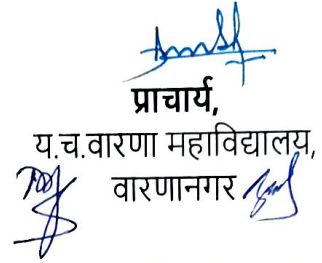 प्राचार्य,
य.च.वारणा महाविद्यालय,
वारणानगर